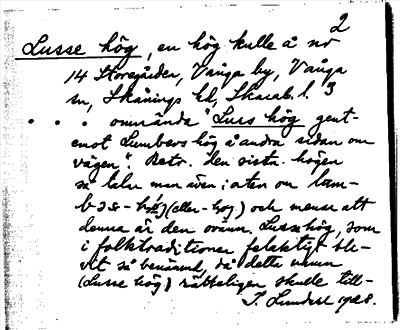 2
Lusse hög, en hög kulle å nr
14 Storegården, Vånga by, Vånga
sn, Skånings hd, Skarab. l. 3
. . . omnända "Luss hög gent-
emot Lumbers hög å andra sidan om
vägen". Betr. den sista högen
så talar man även i orten om
och menar att
denna är den ovann. Lusse hög, som
i folktraditionen felaktigt bli-
vit så benämnd, då detta namn
(Lusse hög) rätteligen skulle till-
1928.